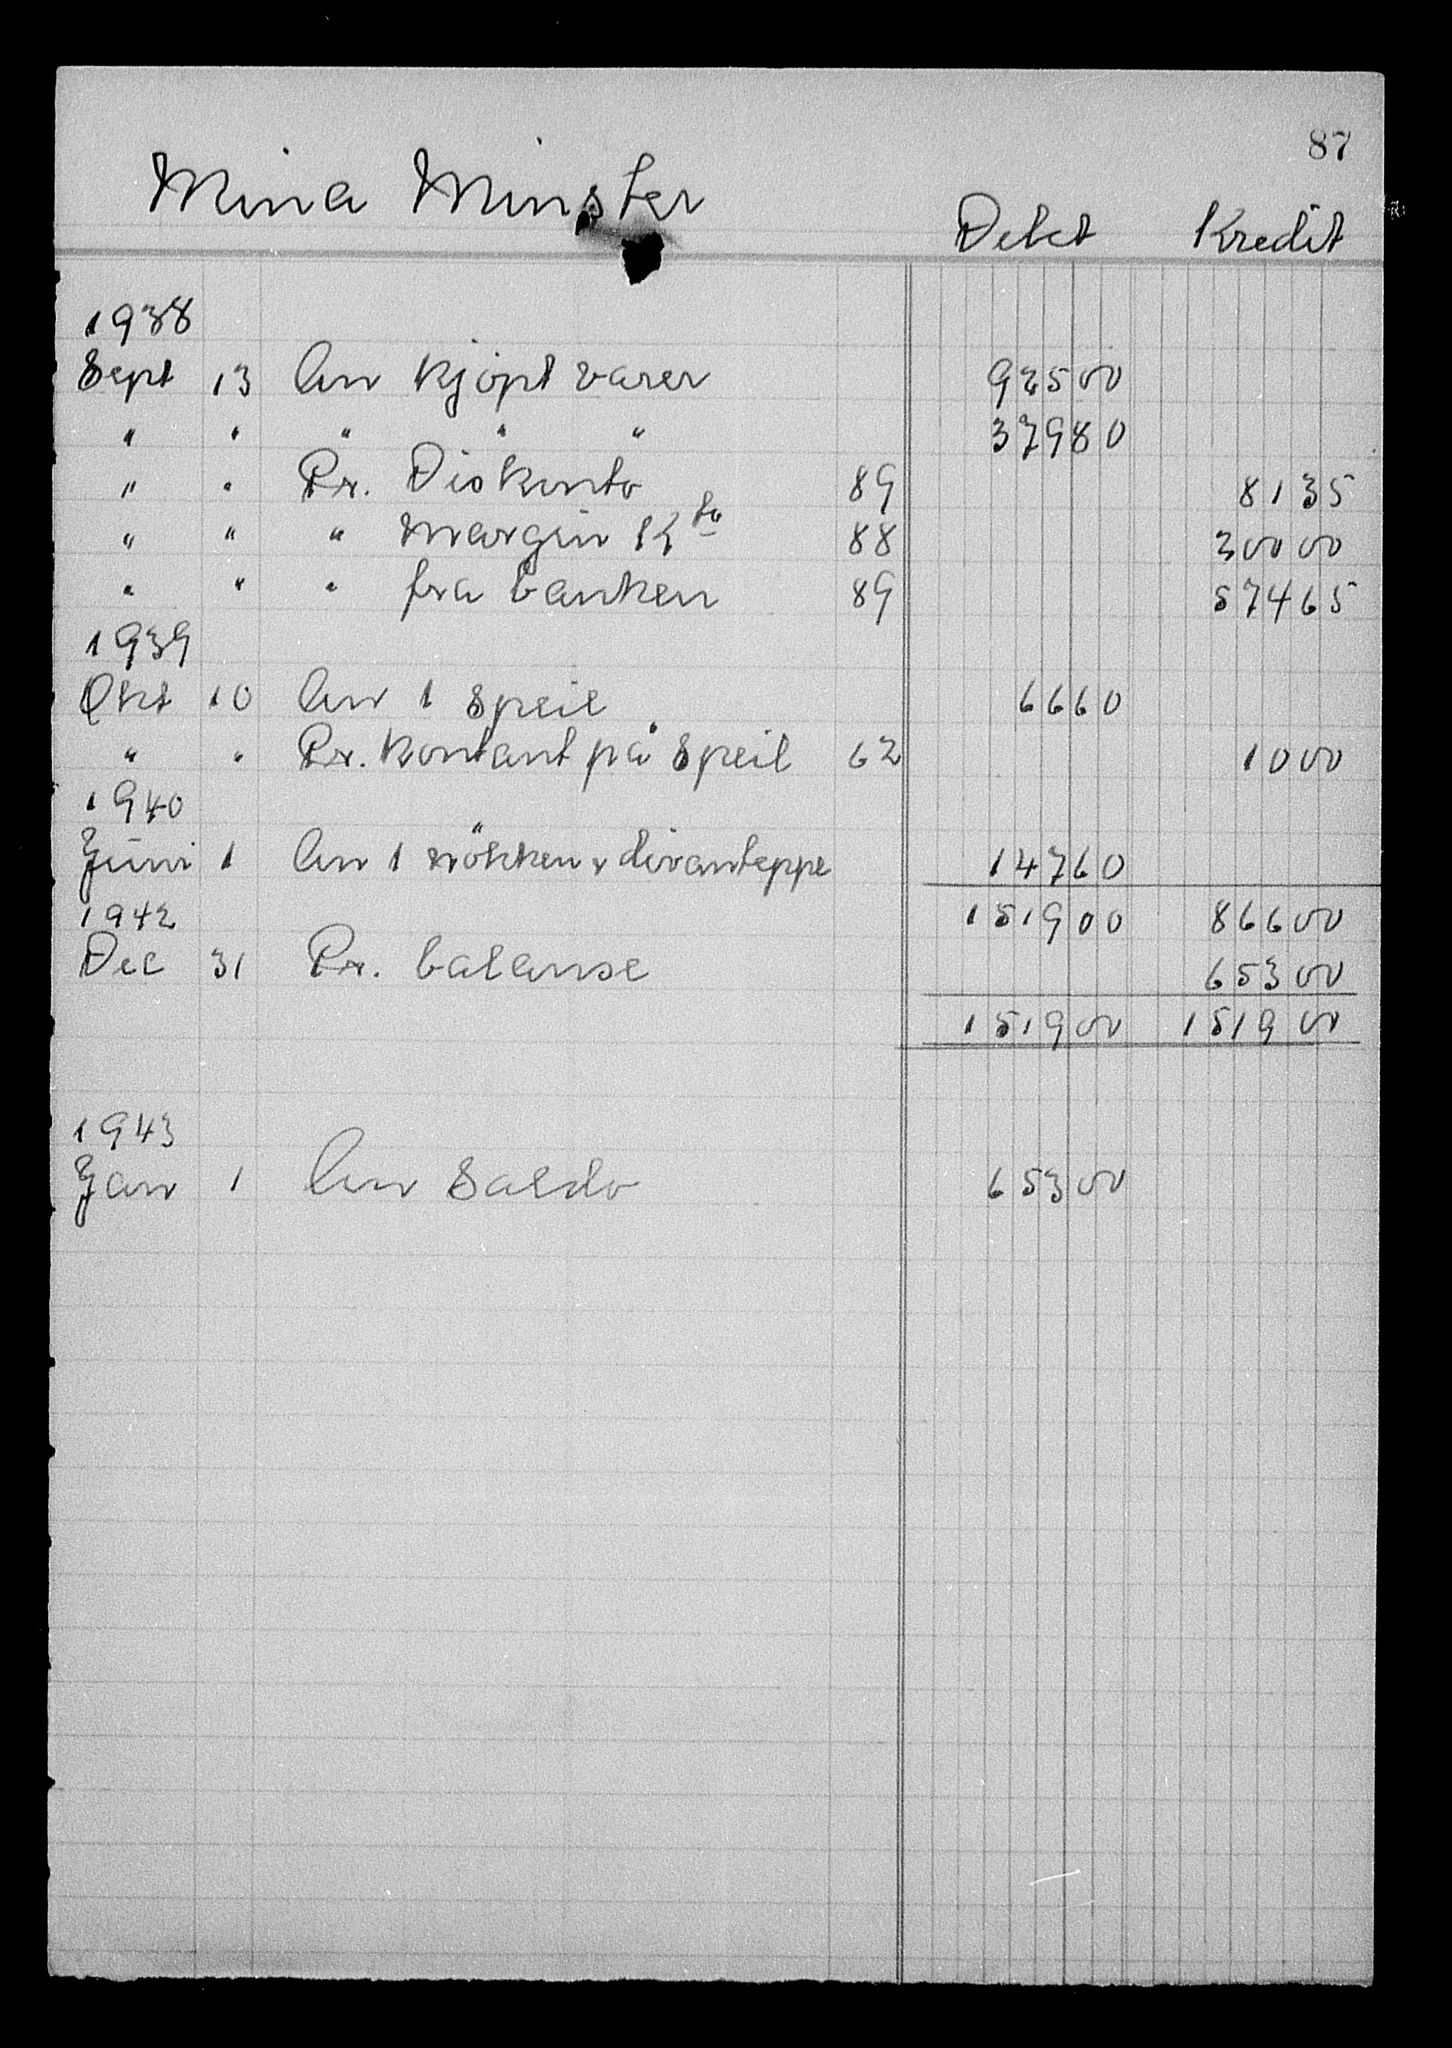 87
Mina Minster
Debet Kredit
1938
Sept 13 An kjöpt varer 92500
" " " " " 37980
" " Pr. Diskonto 89 8135
" " " Margin Kto 88 30000
" " " fra banken 89 57465
1939
Okt 10 An 1 speil 6660
" " Pr. kontant på speil 62 1000
1940
Juni 1 An 1 nökken divanteppe 14760
1942 151900 86600
Dec 31 Pr. balanse 65300
151900 151900
1943
Jan 1 An Saldo 65300